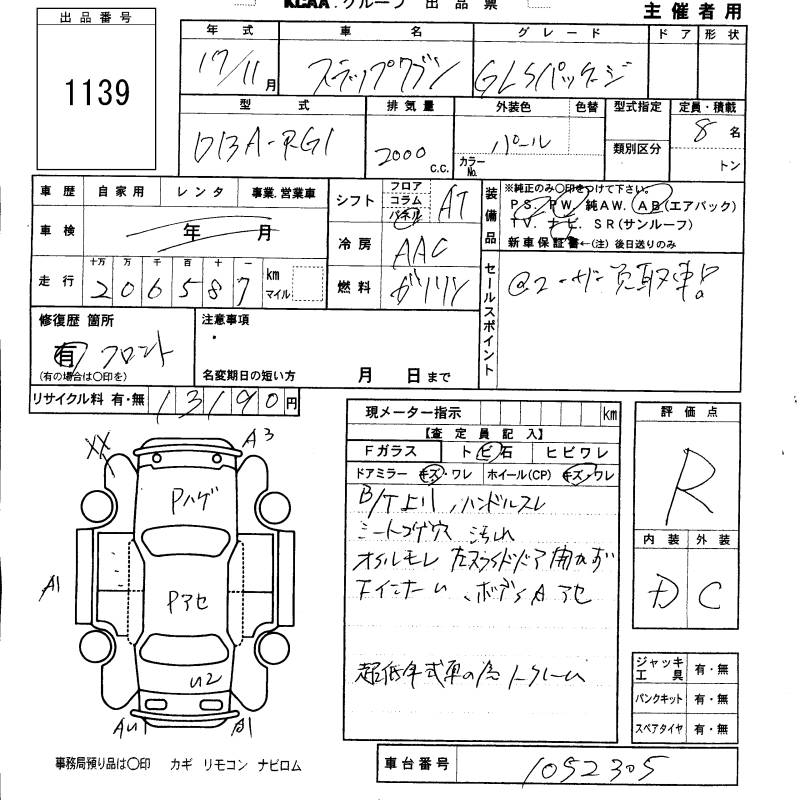 KCAA.グループ 出品票
主催者用
出品番号
1139
年式 車名 グレード ドア 形状
17/11月 ステップワゴン GLSパッケージ
型式 排気量 外装色 色替 型式指定 定員・積載
DBA-RG1 2000c.c. パール カラーNo. 類別区分 8名 トン
車歴 自家用 レンタ 事業.営業車
車検 年 月
走行 十万 万 千 百 十 一 km マイル
206587
シフト フロア コラム パネル AT
冷房 AAC
燃料 ガソリン
装備品
※純正のみ○印をつけて下さい。
PS. PW. 純AW. AB(エアバック)
TV. ナビ. SR(サンルーフ)
新車保証書←(注)後日送りのみ
セールスポイント
@ユーザー買取車!!
修復歴 箇所
有 フロント
(有の場合は○印を)
注意事項
名変期日の短い方 月 日まで
リサイクル料 有・無 13190円
現メーター指示 km
【査定員記入】
Fガラス トビ石 ヒビワレ
ドアミラー キズ・ワレ ホイール(CP) キズ・ワレ
ハンドルスレ
シートコゲ穴 汚れ
オイルモレ 左スライドドア開かず
超低年式車の為ノークレーム
評価点
R
内装 外装
D C
XX A3
Pハゲ
A1
Pアセ
U2
AU1 A1
ジャッキ工具 有・無
パンクキット 有・無
スペアタイヤ 有・無
事務局預り品は○印 カギ リモコン ナビロム
車台番号 1052305